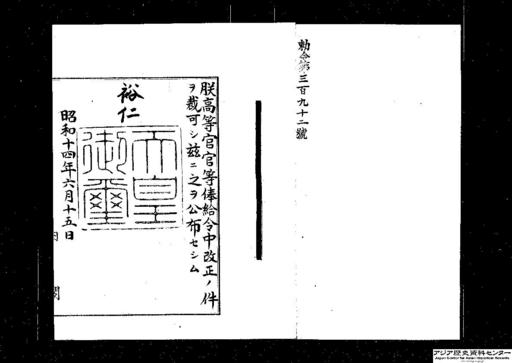 勅令第三百九十二號
朕高等官官等俸給令中改正ノ件
ヲ裁可シ茲ニ之ヲ公布セシム
裕仁
天皇
御璽
昭和十四年六月十五日
アジア歴史資料センター
Japan Center for Asian Historical Records